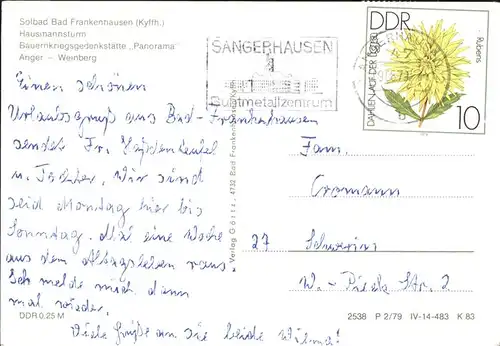 Solbad Bad Frankenhausen (Kyffh.)
Hausmannsturm
Bauernkriegsgedenkstätte „Panorama"
Anger – Weinberg
SANGERHAUSEN
Buntmetallzentrum
DDR
DAHLIEN AUF DER
Rubens
10
Einen schönen
Urlaubsgruß aus Bad-Frankenhausen
sendet Fr.
u. Tochter. Wir sind
seid Montag hier bis
Sonntag. Mal eine Woche
aus dem Alltagsleben raus.
Ich melde mich dann
mal wieder.
Viele Grüße an Sie beide Wilma!
Verlag Görtz, 4732 Bad Frankenhausen/Kyffh.
Fam.
Cromann
27 Schwerin
W.-Pieck Str. 2
DDR 0,25 M
2538 P 2/79 IV-14-483 K 83